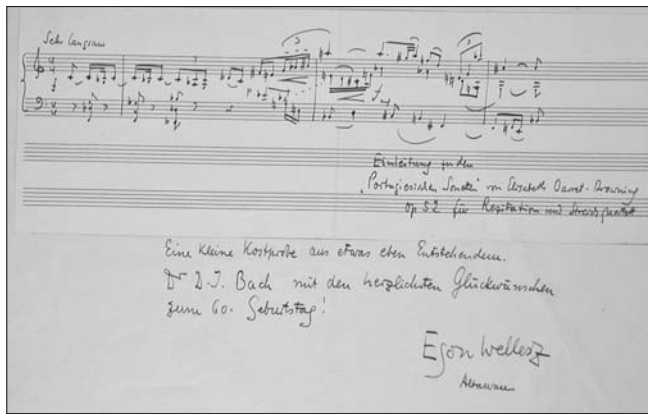 Sehr langsam
3
3
3
p
f
Einleitung zu den
"Portugiesischen Sonetten" von Elizabeth Barret-Browning
op 52 für Rezitation und Streichquartett
Eine kleine Kostprobe aus etwas eben Entstehendem.
Dr D.J. Bach mit den herzlichsten Glückwünschen
zum 60. Geburtstag!
Egon Wellesz
Altaussee